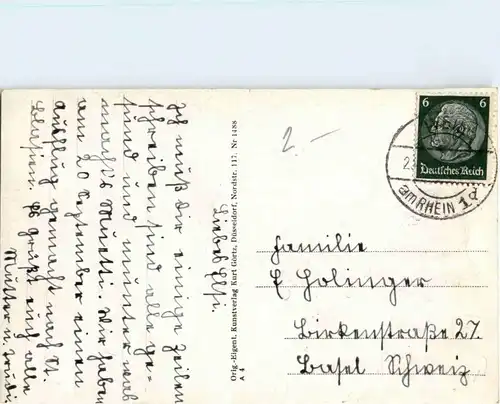 Liebes Elsi.
Ich muß Dir einige Zeilen
schreiben sind alle ge-
sund und munter was
macht's Muetti. Wir haben
am 20 September einen
Ausflug gemacht nach St.
Blasien. Es grüßt euch alle
Mutter u. Trudi
Orig.-Eigent. Kunstverlag Kurt Görtz, Düsseldorf, Nordstr. 117. Nr 1488
A 4
2.-
6 6
Deutsches Reich
am RHEIN 1d
Familie
E Holinger
Birkenstraße 27.
Basel Schweiz